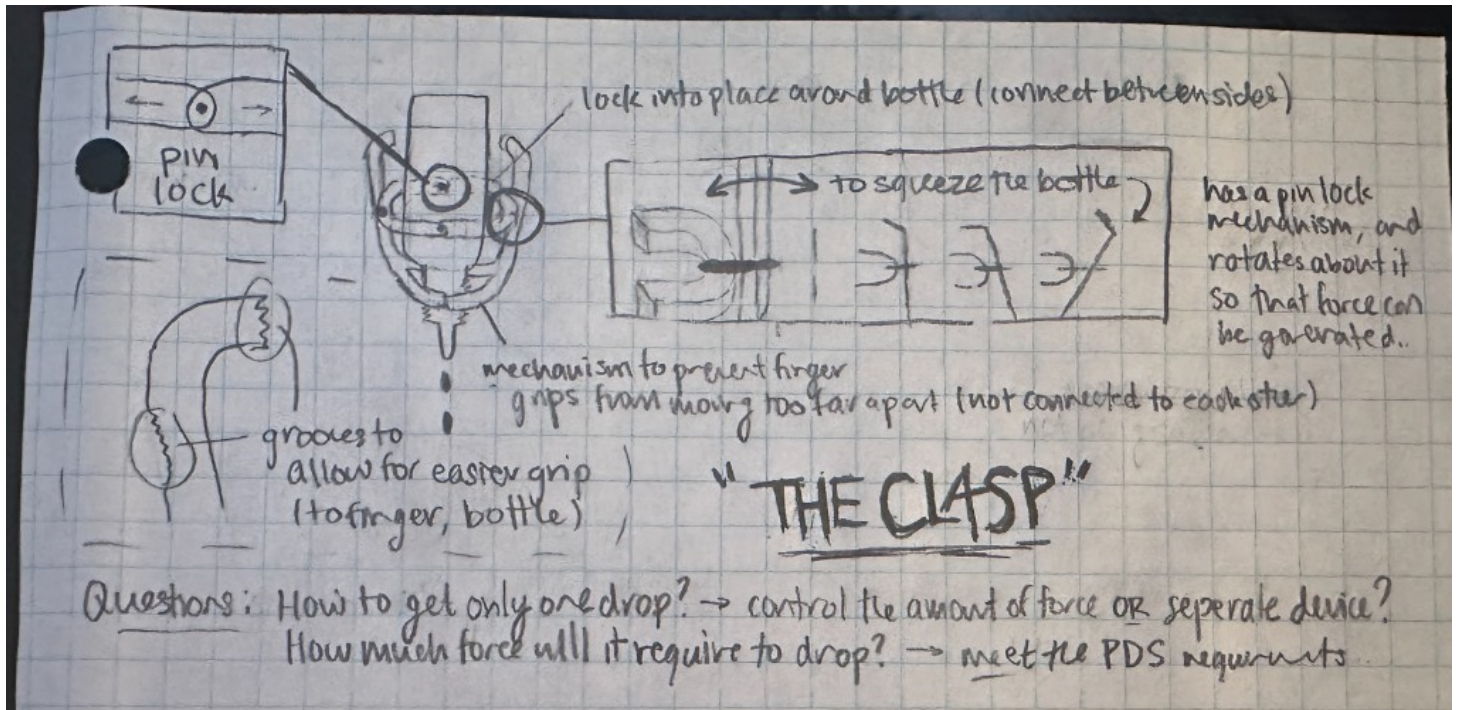 pin
lock
lock into place around bottle (connect between sides)
to squeeze the bottle
has a pin lock
mechanism, and
rotates about it
so that force can
be generated..
mechanism to prevent finger
grips from moving too far apart (not connected to each other)
grooves to
allow for easier grip
(to finger, bottle)
"THE CLASP"
Questions: How to get only one drop? → control the amount of force OR seperate device?
How much force will it require to drop? → meet the PDS requirements..